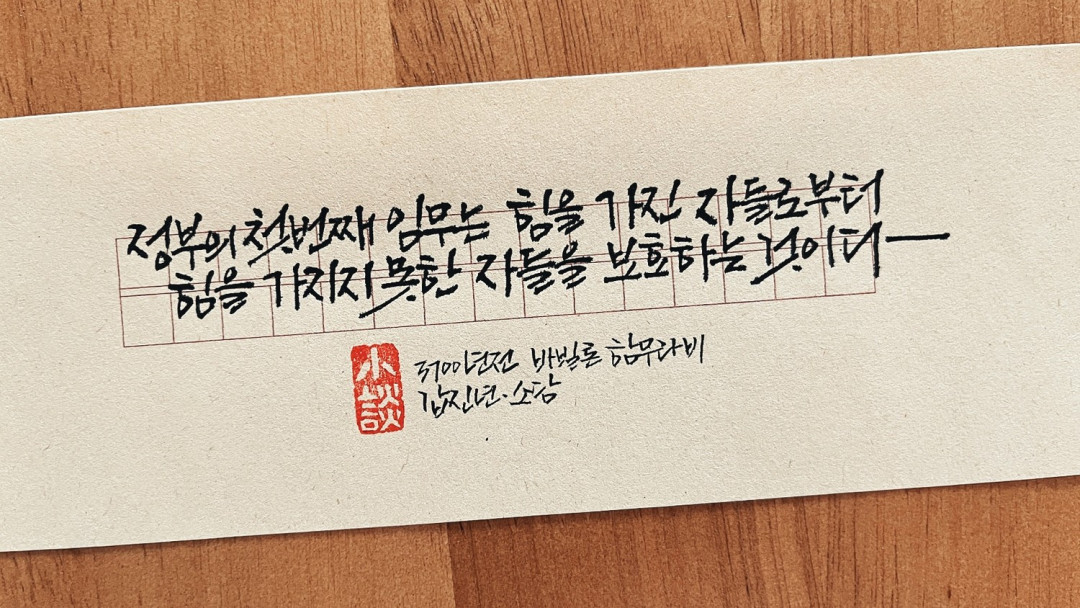 정부의 첫번째 임무는 힘을 가진 자들로부터
힘을 가지지 못한 자들을 보호하는 것이다
3700년전 바빌론 함무라비
갑진년·소담
小談